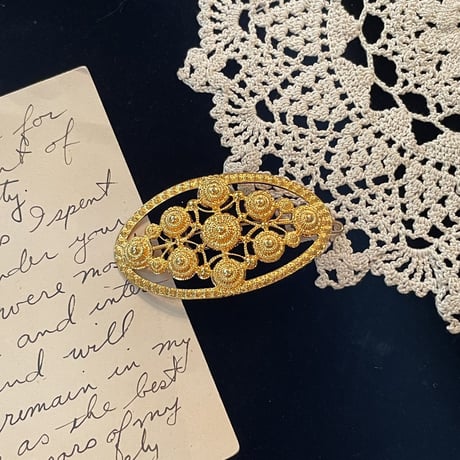 for
nt of
ty.
I spent
nder your
were mo
and inte
and will
remain in my
as the best
ears of my